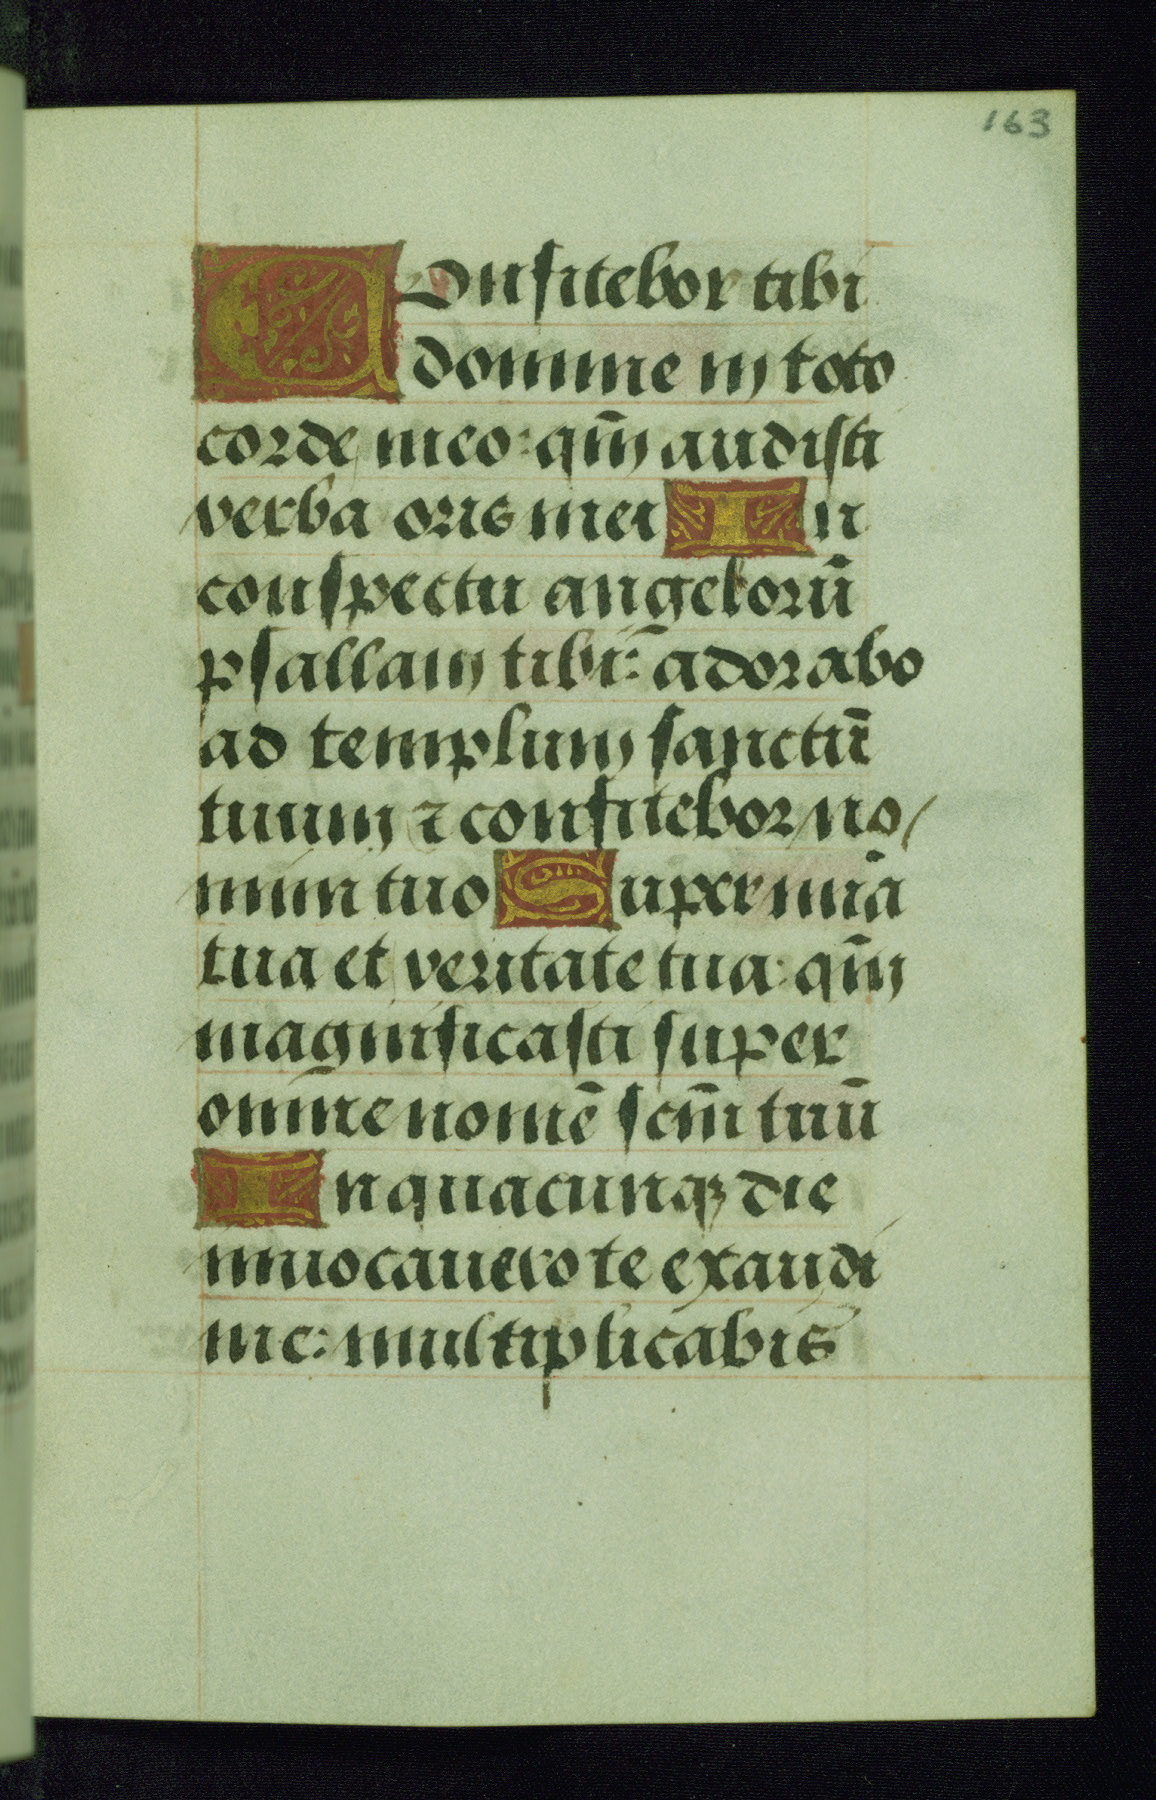 163
Confitebor tibi
domine in toto
corde meo: qm̄ audisti
verba oris mei In
conspectu angelorū
psallam tibi: adorabo
ad templum sanctū
tuum ⁊ confitebor no/
mini tuo Super mīa
tua et veritate tua: qm̄
magnificasti super
omne nomē scm̄ tuū
In quacunqꝫ die
inuocauero te exaudi
me: multiplicabis